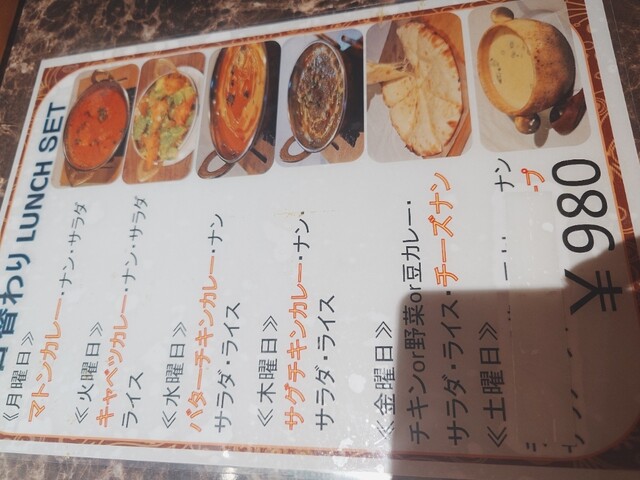 日替わり LUNCH SET
《月曜日》
マトンカレー・ナン・サラダ
《火曜日》
キャベツカレー・ナン・サラダ
ライス
《水曜日》
バターチキンカレー・ナン
サラダ・ライス
《木曜日》
サグチキンカレー・ナン・
サラダ・ライス
《金曜日》
チキンor野菜or豆カレー・
サラダ・ライス・チーズナン
《土曜日》
ナン
¥980